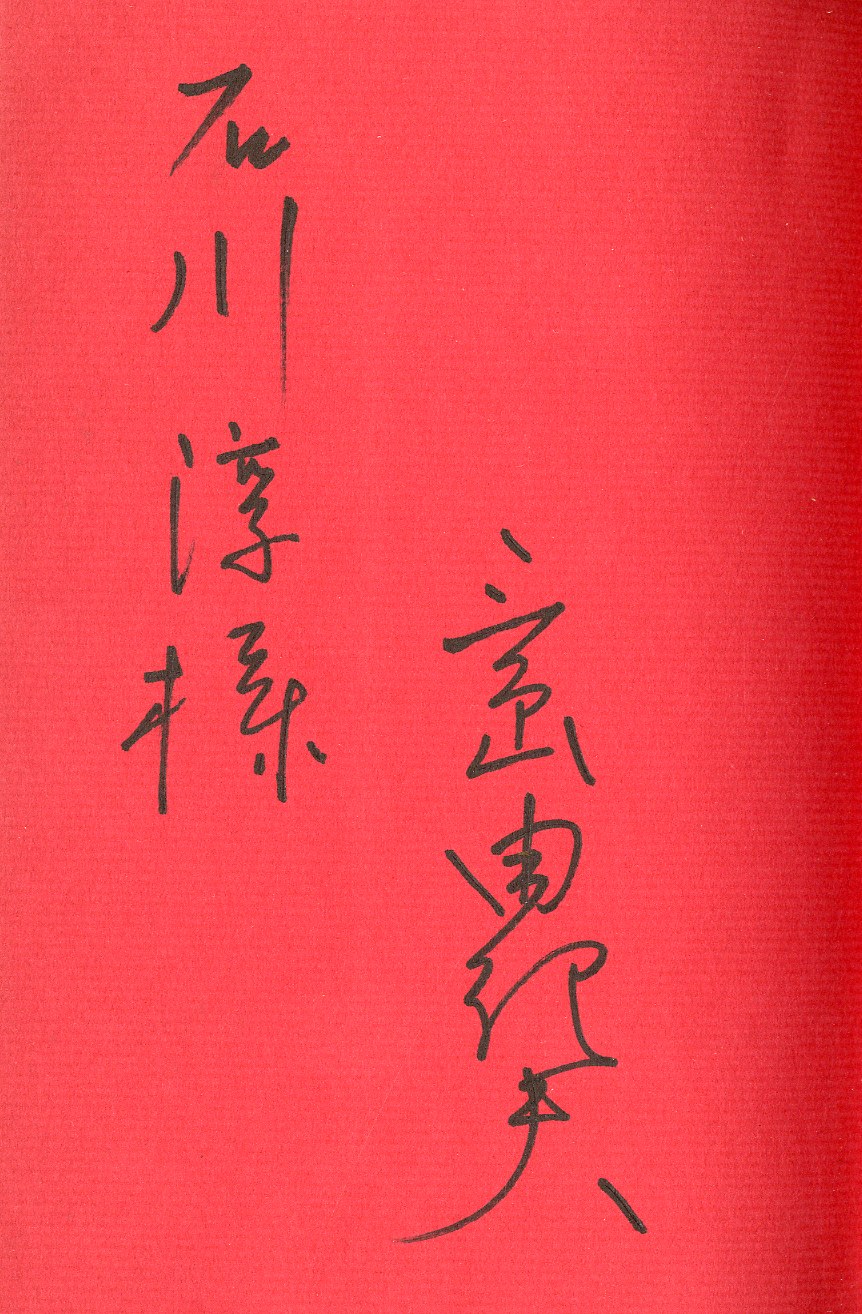 三島由紀夫
石川淳様